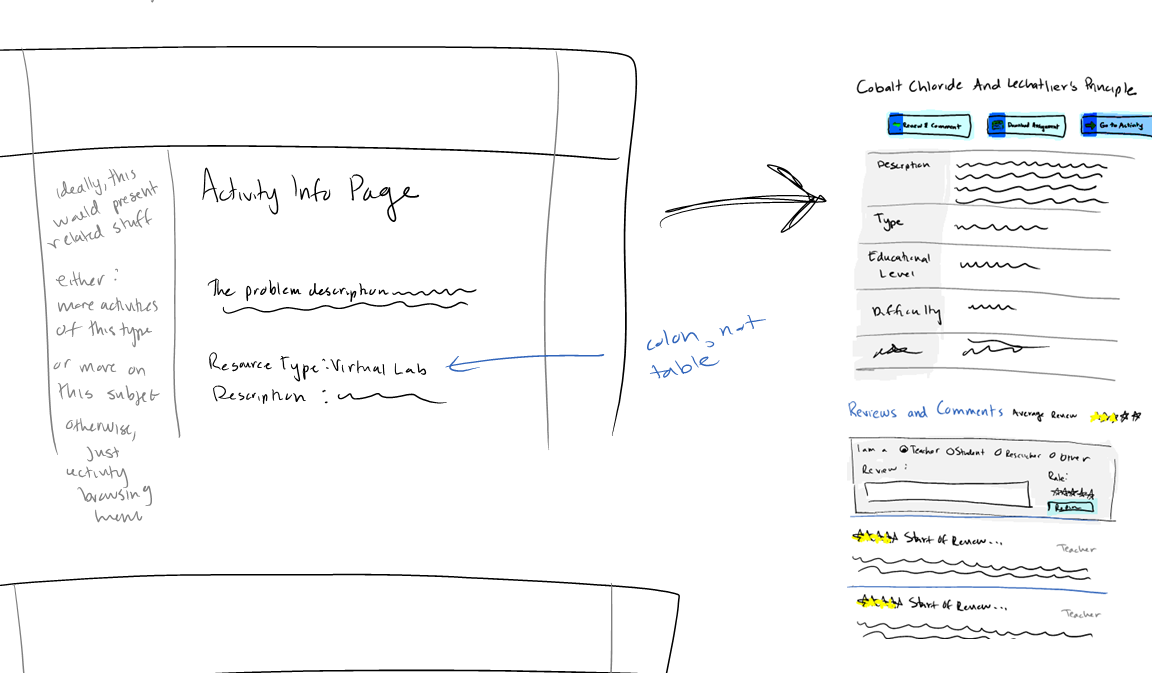 ideally, this
would present
related stuff
either :
more activities
of this type
or more on
this subject
otherwise,
just
activity
browsing
menu
Activity Info Page
The problem description
Resource Type: Virtual Lab
Description :
colon, not
table
Cobalt Chloride And Lechatlier's Principle
Review & Comment
Download Assignment
Go to Activity
Description
Type
Educational
Level
Difficulty
Reviews and Comments Average Review
I am a Teacher Student Researcher Other
Review :
Rate:
Review
Start of Review...
Teacher
Start of Review...
Teacher